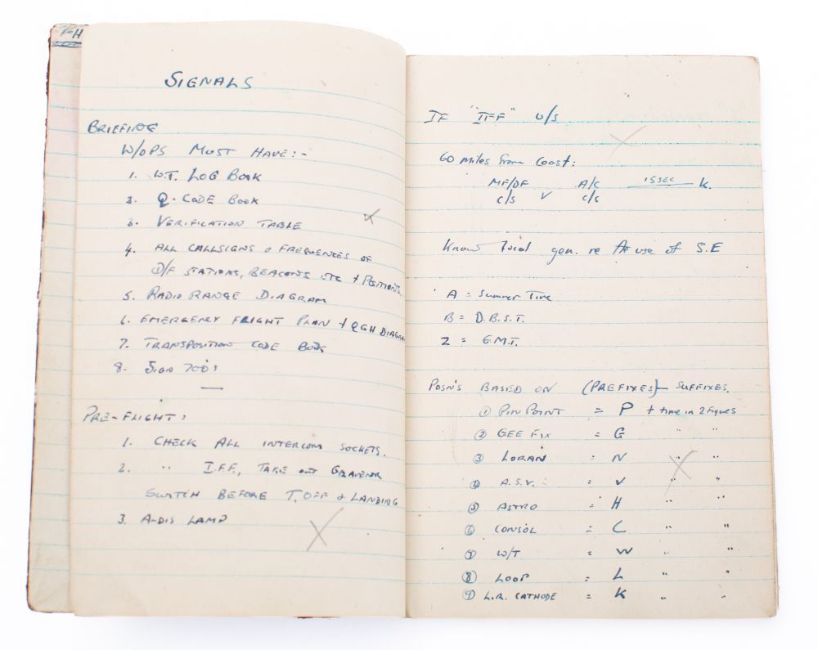 SIGNALS
BRIEFING
W/OPS MUST HAVE:-
1. W.T. LOG BOOK
2. Q. CODE BOOK
3. VERIFICATION TABLE
4. ALL CALLSIGNS & FREQUENCES OF
D/F STATIONS, BEACONS ETC + POSITIONS
5. RADIO RANGE DIAGRAM
6. EMERGENCY FLIGHT PLAN + QGH DIAGRAM
7. TRANSPOSITION CODE BOOK
8. SIGN 700!
PRE-FLIGHT:
1. CHECK ALL INTERCOM SOCKETS.
2. " I.F.F., TAKE OUT
SWITCH BEFORE T. OFF & LANDING
3. ALDIS LAMP
IF "IFF" U/S.
60 miles from Coast:
MF/DF A/C 15 SEC K.
C/S V C/S
Know gen. re the use of S.E
A = Summer Time
B = D.B.S.T.
Z = G.M.T.
POSN'S BASED ON (PREFIXES) SUFFIXES.
① PIN POINT = P + time in 2 figures
② GEE FIX = G " "
③ LORAN = N " "
④ A.S.V. = V " "
⑤ ASTRO = H " "
⑥ CONSOL = C " "
⑦ W/T = W " "
⑧ LOOP = L " "
⑨ L.R. CATHODE = K " "